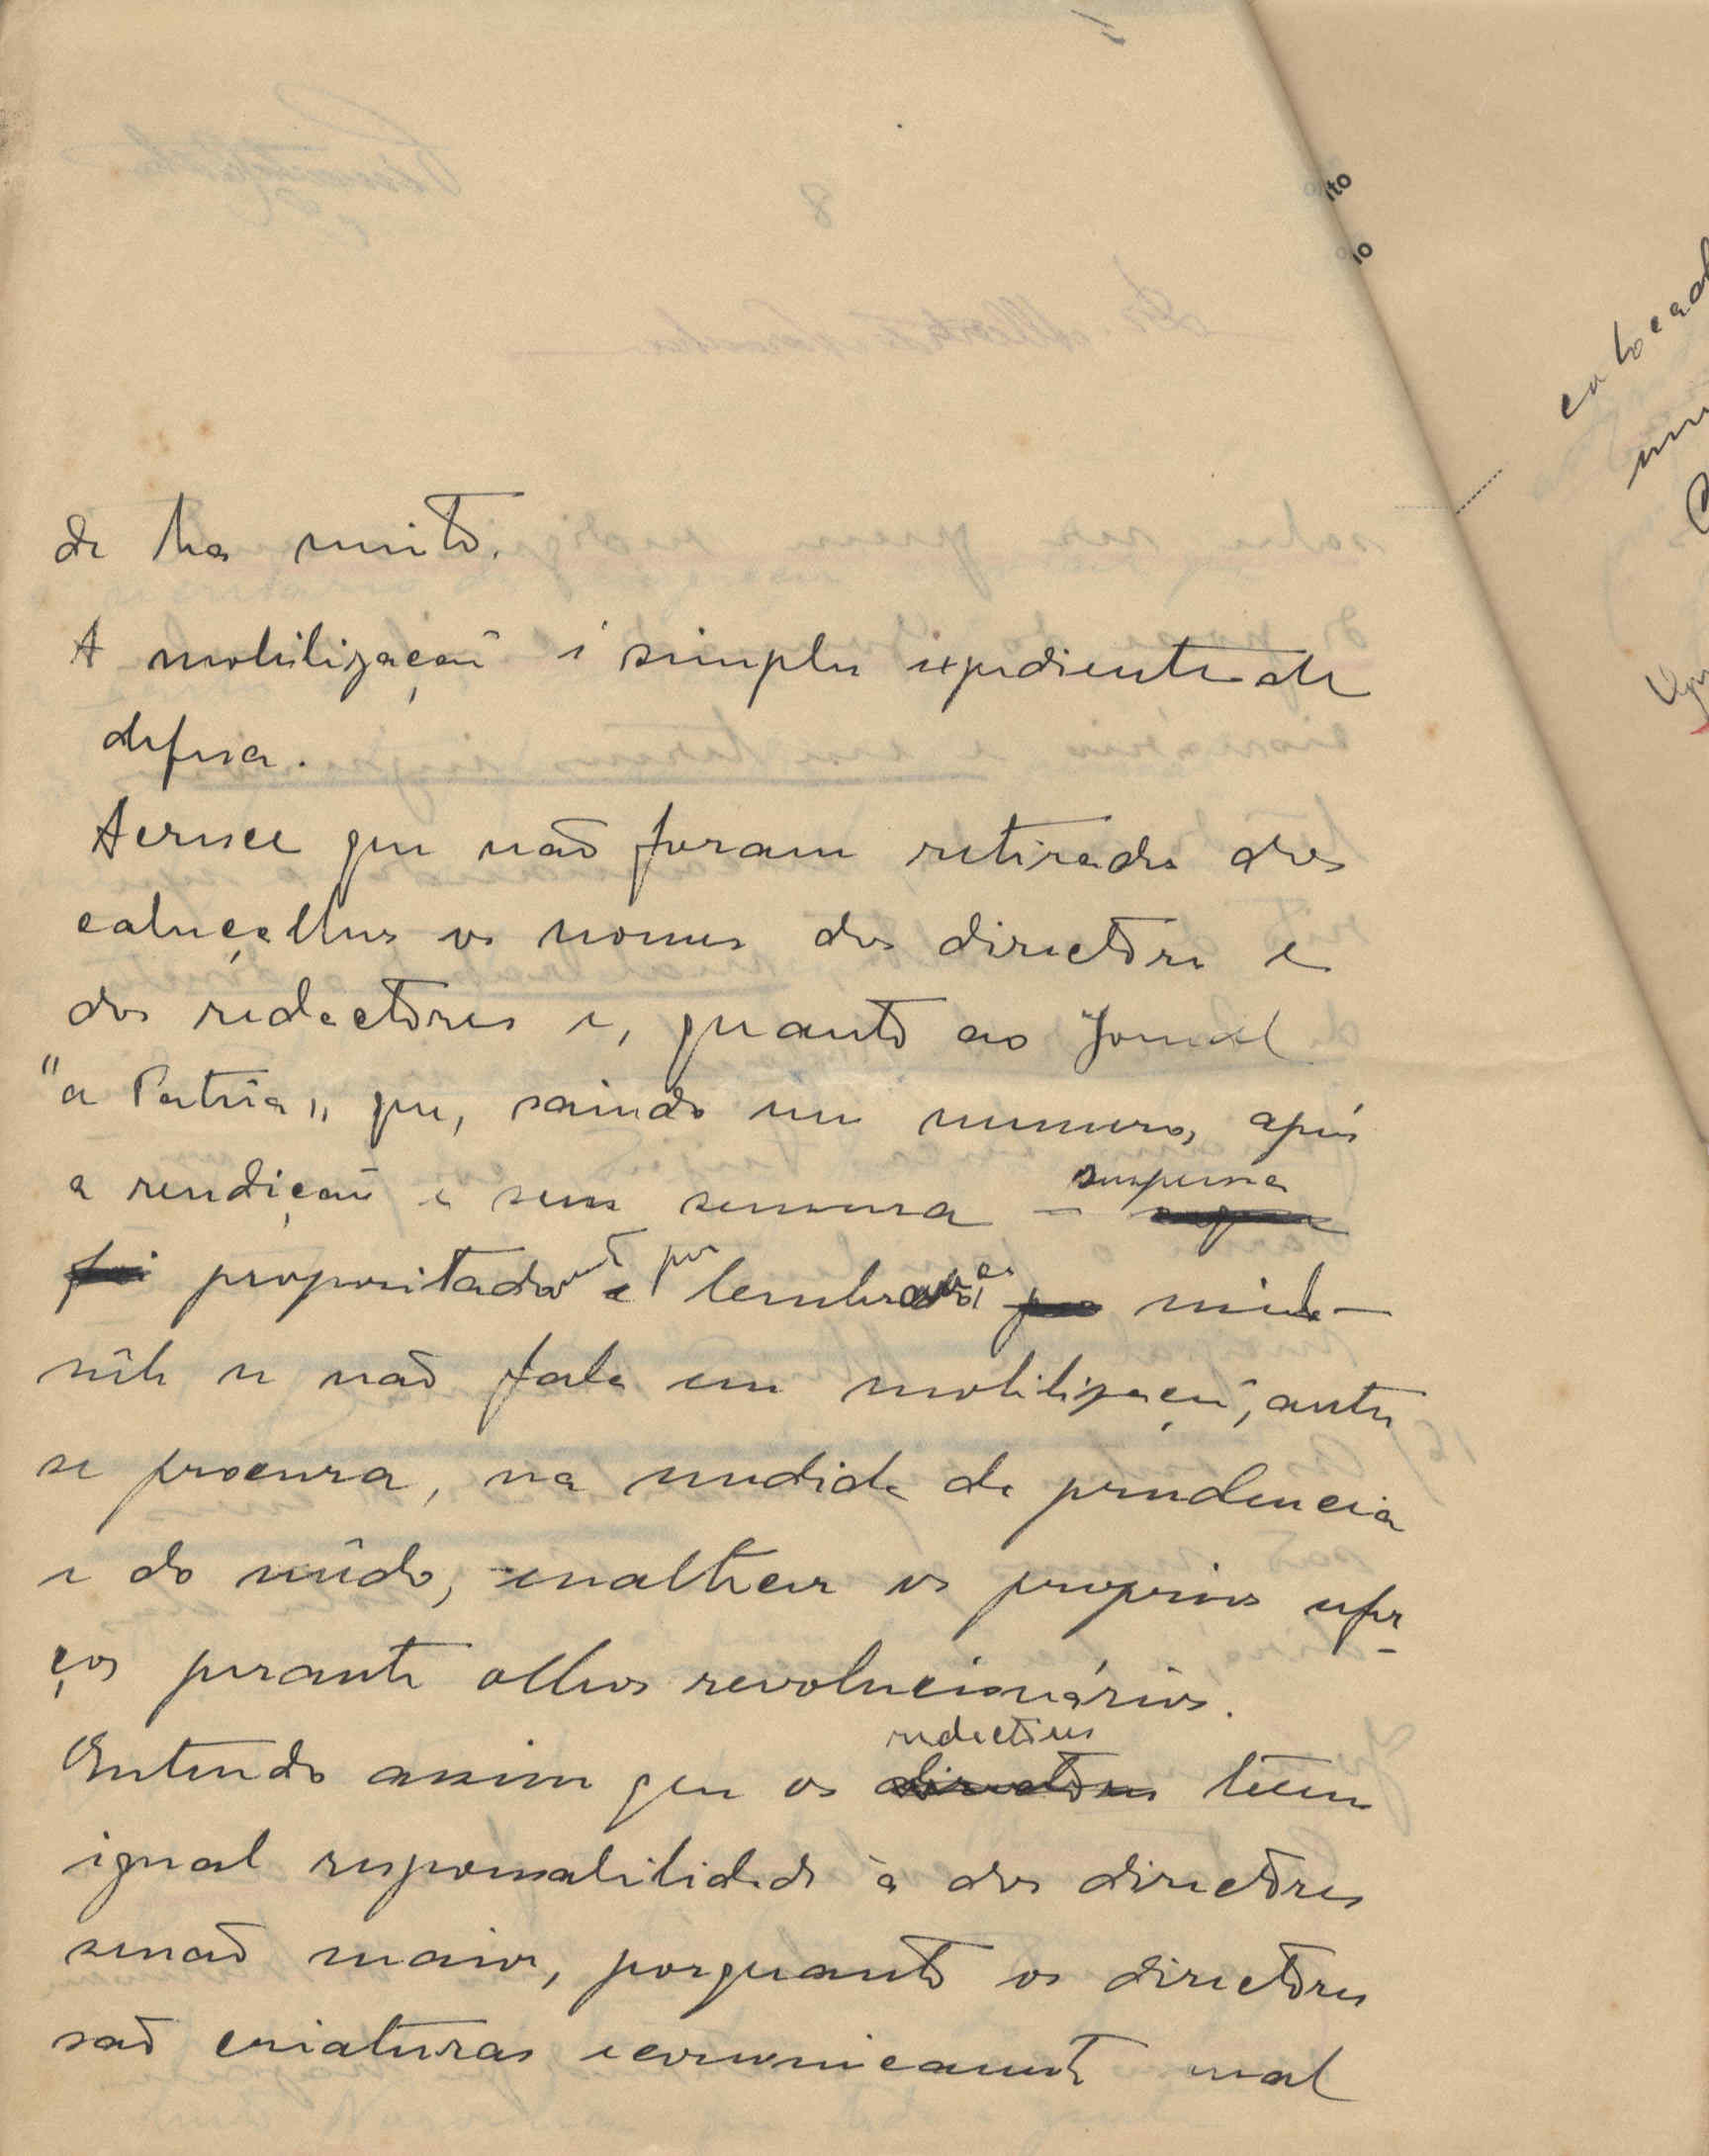 de ha muito.
A mobilização é simples expediente de
defesa.
Acresce que não foram retirados dos
cabeçalhos os nomes dos directores e
dos redactores e, quanto ao Jornal
"a Patria" que, saindo um numero, após
a rendição e sem censura – suspensa
propositadamte e por lembrar a
se não fala em mobilização, antes
se procura, na medida da prudencia
e do mêdo, enaltecer os proprios esfor-
ços perante olhos revolucionários.
Entendo assim que os directores redactores teem
igual responsabilidade à dos directores
senão maior, porquanto os directores
são criaturas economicamte mal